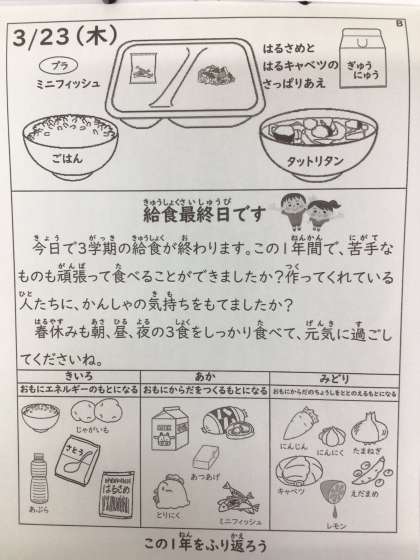 B
3/23(木)
プラ
ミニフィッシュ
はるさめと
はるキャベツの
さっぱりあえ
ぎゅう
にゅう
ごはん
タットリタン
きゅうしょくさいしゅうび
給食最終日です
きょう がっき きゅうしょく お ねんかん にがて
今日で3学期の給食が終わります。この1年間で、苦手な
がんば た つく
ものも頑張って食べることができましたか?作ってくれている
ひと きも
人たちに、かんしゃの気持ちをもてましたか?
はるやす あさ ひる よる しょく た げんき す
春休みも朝、昼、夜の3食をしっかり食べて、元気に過ごし
てくださいね。
きいろ
あか
みどり
おもにエネルギーのもとになる
おもにからだをつくるもとになる
おもにからだのちょうしをととのえるもとになる
じゃがいも
さとう
あぶら
はるさめ
あつあげ
とりにく
ミニフィッシュ
にんじん
にんにく
たまねぎ
キャベツ
えだまめ
レモン
ねん かえ
この1年をふり返ろう